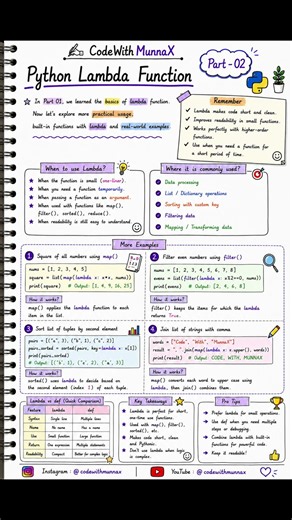 CodeWith MunnaX
Python Lambda Function
Part - 02
In Part 01, we learned the basics of lambda function.
Now let's explore more practical usage,
built-in functions with lambda and real-world examples
Remember
Lambda makes code short and clean.
Improves readability in small functions.
Works perfectly with higher-order
functions.
Use when you need a function for
a short period of time.
When to use Lambda?
When the function is small (one-liner)
When you need a function temporarily.
When passing a function as an argument.
When used with functions like map(),
filter(), sorted(), reduce().
When readability is still easy to understand
Where it is commonly used?
Data processing
List / Dictionary operations
Sorting with custom key
Filtering data
Mapping / Transforming data
More Examples
1 Square of all numbers using map()
nums = [1, 2, 3, 4, 5]
square = list(map(lambda x: x*x, nums))
print(square) # Output: [1, 4, 9, 16, 25]
How it works?
map() applies the lambda function to each
item in the list.
2 Filter even numbers using filter()
nums = [1, 2, 3, 4, 5, 6, 7, 8]
evens = list(filter(lambda x: x%2==0, nums))
print(evens) # Output: [2, 4, 6, 8]
How it works?
filter() keeps the items for which the lambda
returns True.
3 Sort list of tuples by second element
print(pairs_sorted)
How it works?
sorted() uses lambda to decide based on
the second element (index 1) of each tuple.
4 Join list of strings with comma
words = ["Code", "With", "MunnaX"]
result = ", ".join(map(lambda x: x.upper(), words))
print(result) # Output: CODE, WITH, MUNNAX
How it works?
map() converts each word to upper case using
lambda, then join() combines them.
Lambda vs def (Quick Comparison)
Feature lambda def
Syntax Single line Multiple lines
Name No name Has a name
Use Small function Large function
Return One expression Multiple statements
Readability Compact Better for complex logic
Key Takeaways
Lambda is perfect for short,
one-time use functions.
Used with map(), filter(),
sorted(), etc.
Makes code short, clean
and Pythonic.
Don't use lambda when logic
is complex.
Pro Tips
Prefer lambda for small operations
Use def when you need multiple
steps or debugging.
Combine lambda with built-in
functions for powerful code.
Keep it readable!
Instagram : @ codewithmunnax
YouTube : @ codewithmunnax